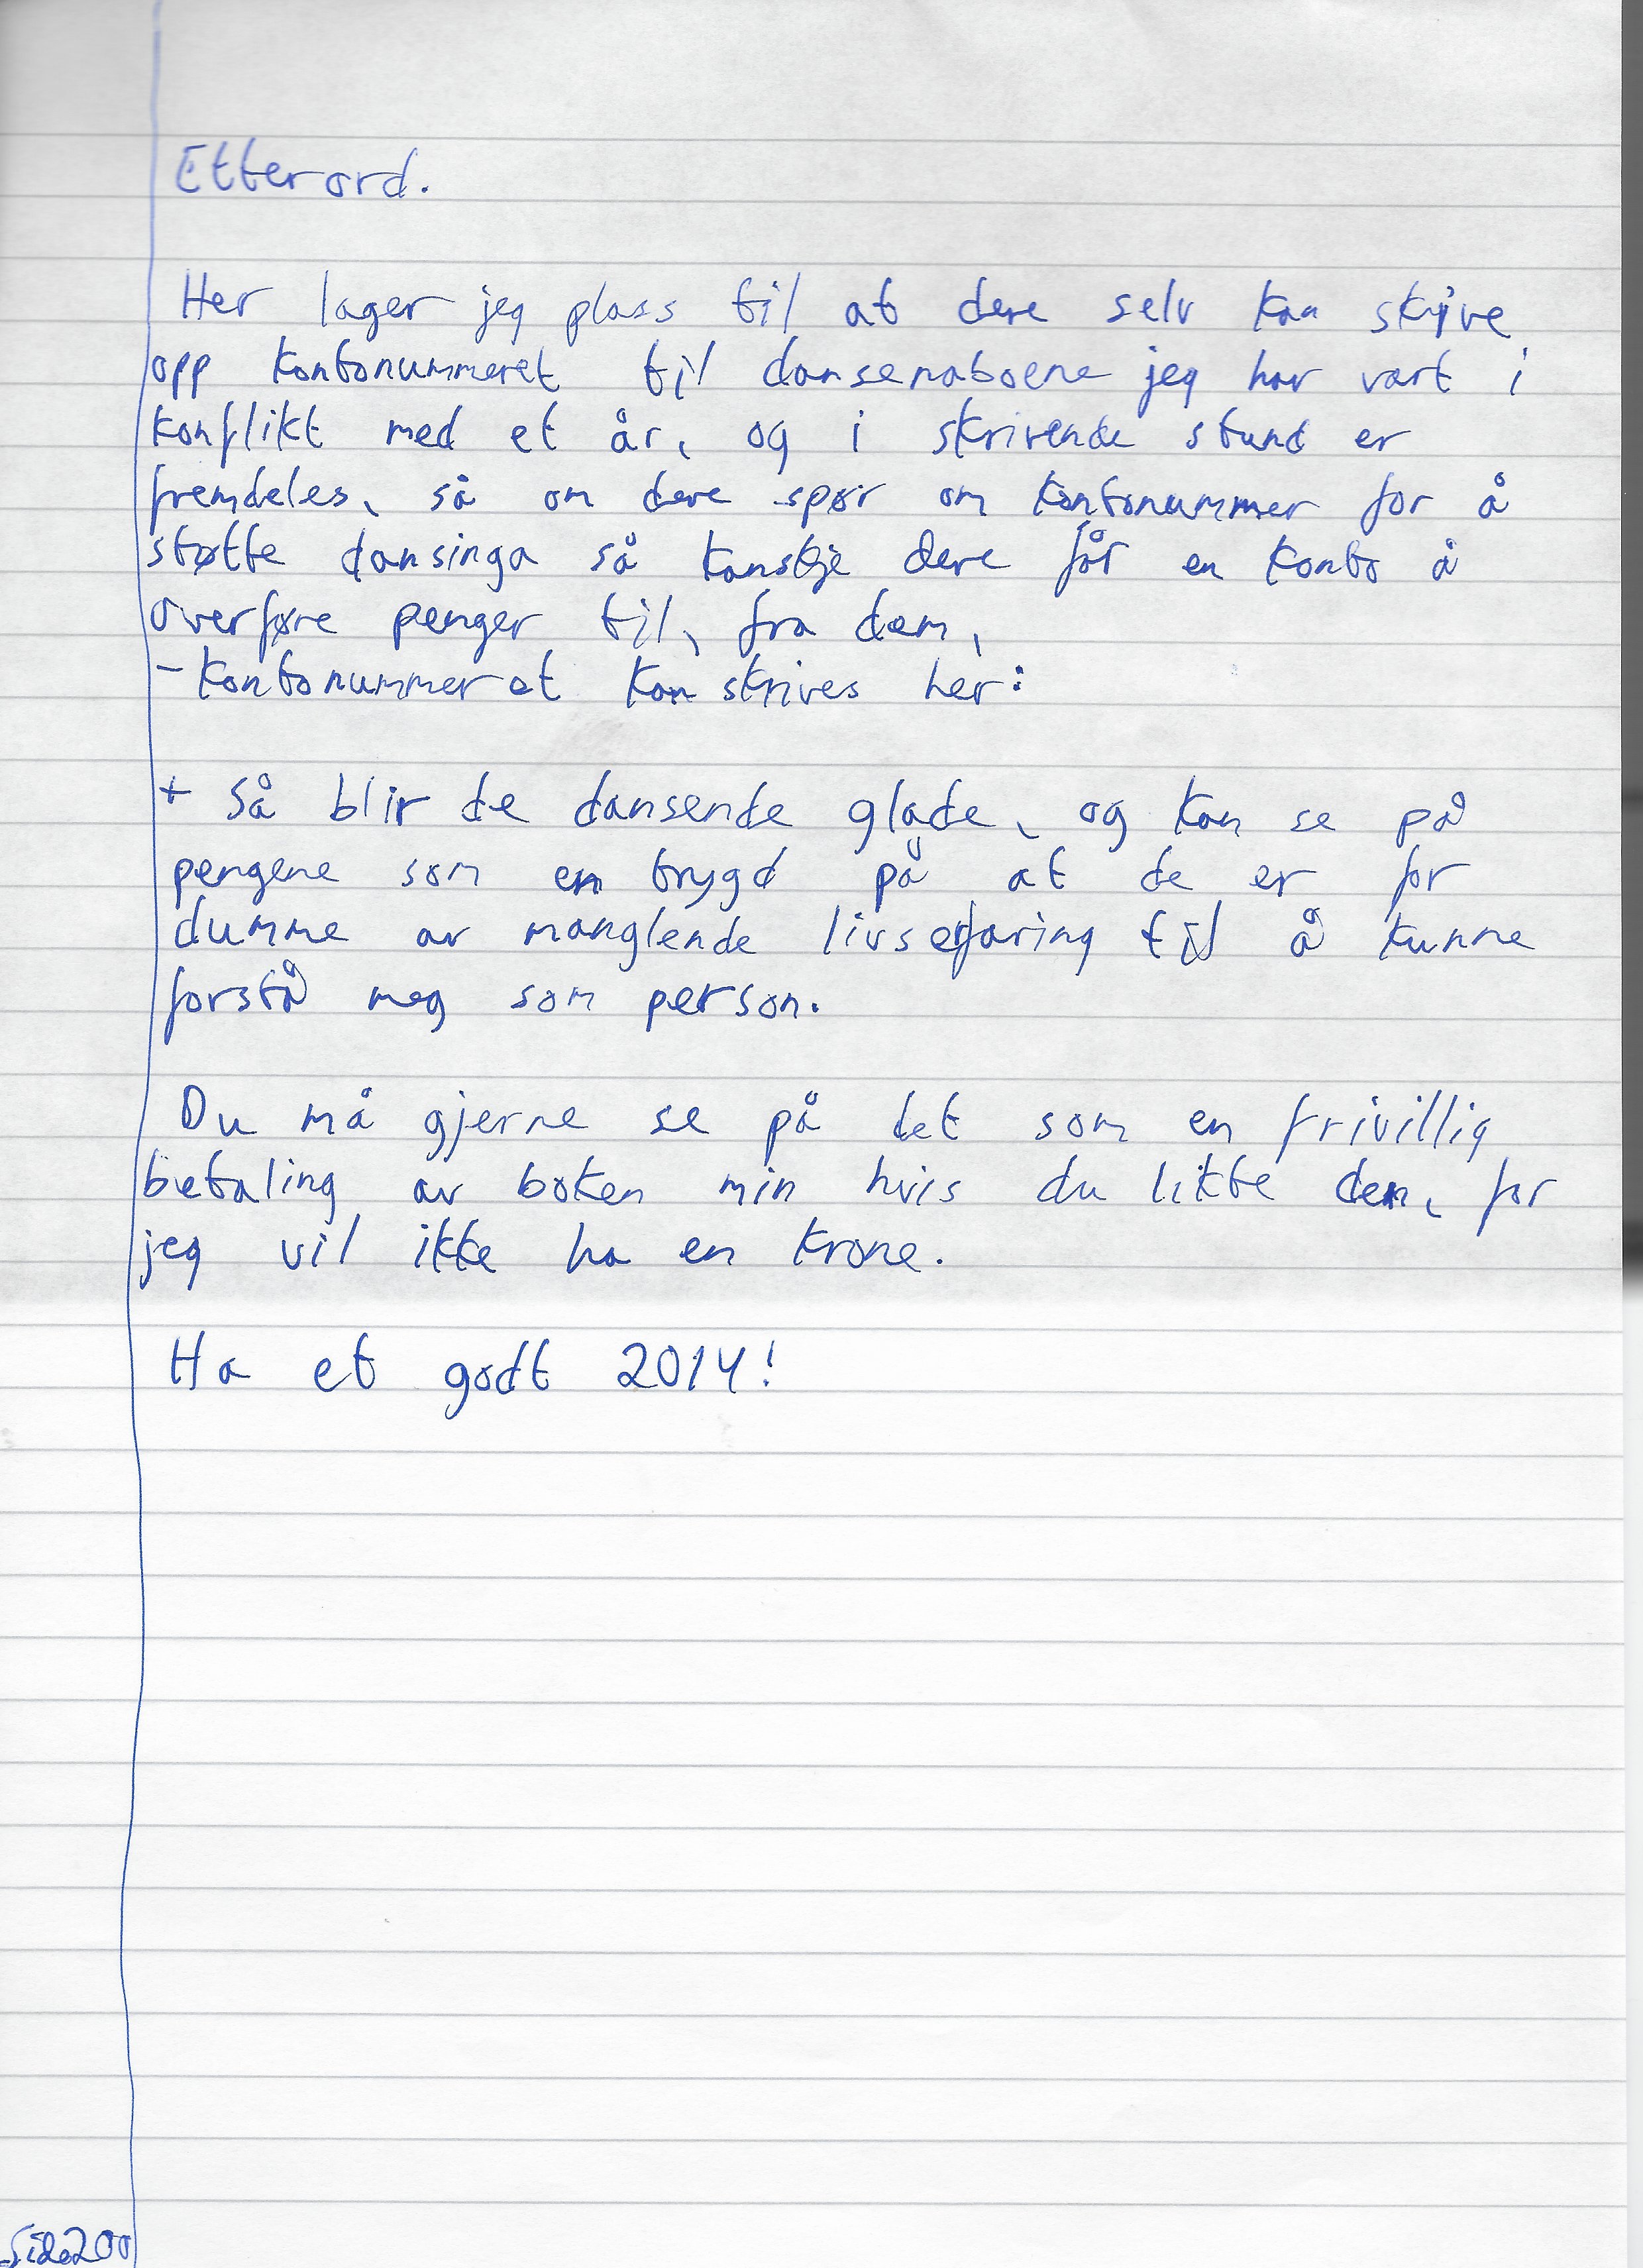 Etterord.
Her lager jeg plass til at dere selv kan skrive
opp kontonummeret til dansenaboene jeg har vært i
konflikt med et år, og i skrivende stund er
fremdeles, så om dere spør om kontonummer for å
støtte dansinga så kanskje dere får en konto å
overføre penger til, fra dem,
- Kontonummeret kan skrives her:
+ Så blir de dansende glade, og kan se på
pengene som en trygd på at de er for
dumme av manglende livserfaring til å kunne
forstå meg som person.
Du må gjerne se på det som en frivillig
betaling av boken min hvis du likte den, for
jeg vil ikke ha en krone.
Ha et godt 2014!
Side200